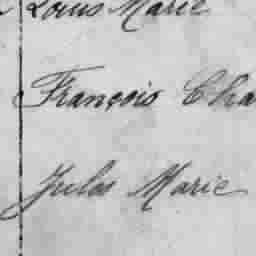 Louis Marie
François Cha
Jules Marie